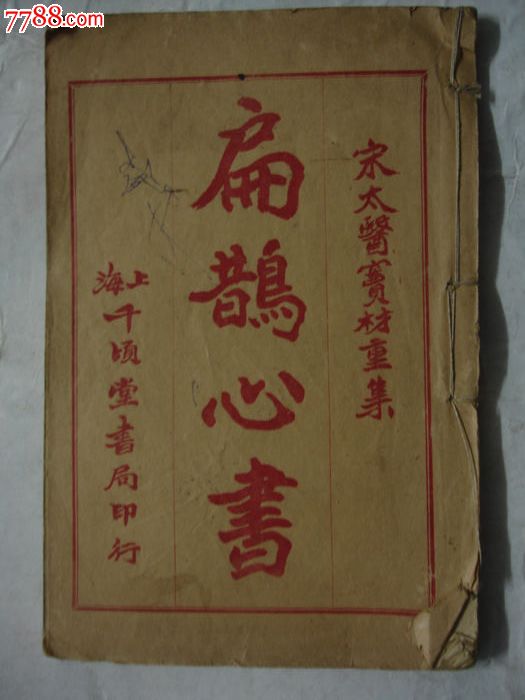 7788.com
宋太醫竇材重集
扁鵲心書
上海
千頃堂書局印行